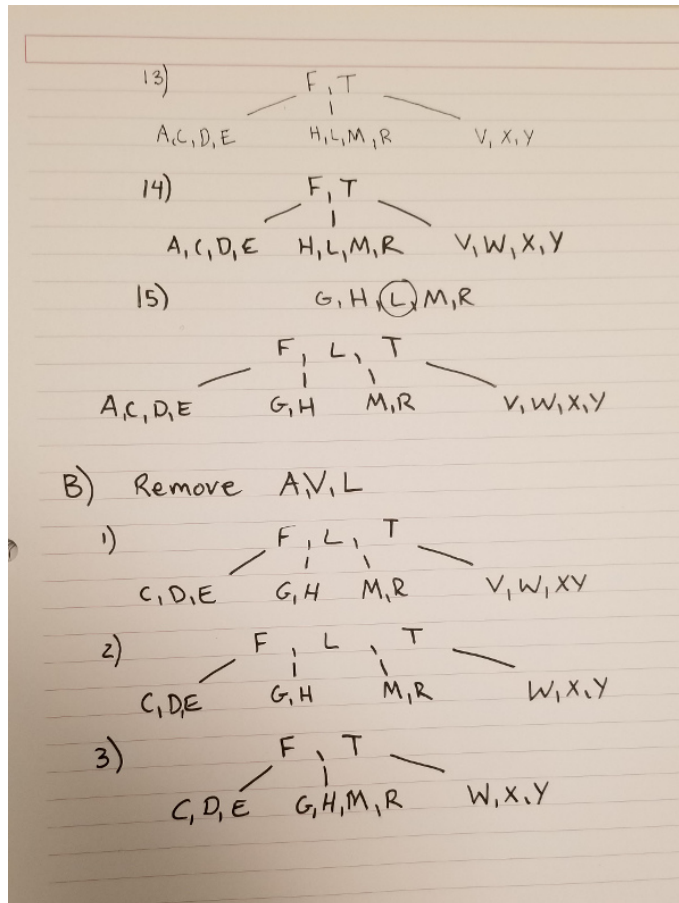 13) F, T
A,C,D,E H,L,M,R V,X,Y
14) F, T
A,C,D,E H,L,M,R V,W,X,Y
15) G,H,L,M,R
F, L, T
A,C,D,E G,H M,R V,W,X,Y
B) Remove A,V,L
1) F, L, T
C,D,E G,H M,R V,W,XY
2) F, L, T
C,D,E G,H M,R W,X,Y
3) F, T
C,D,E G,H,M,R W,X,Y